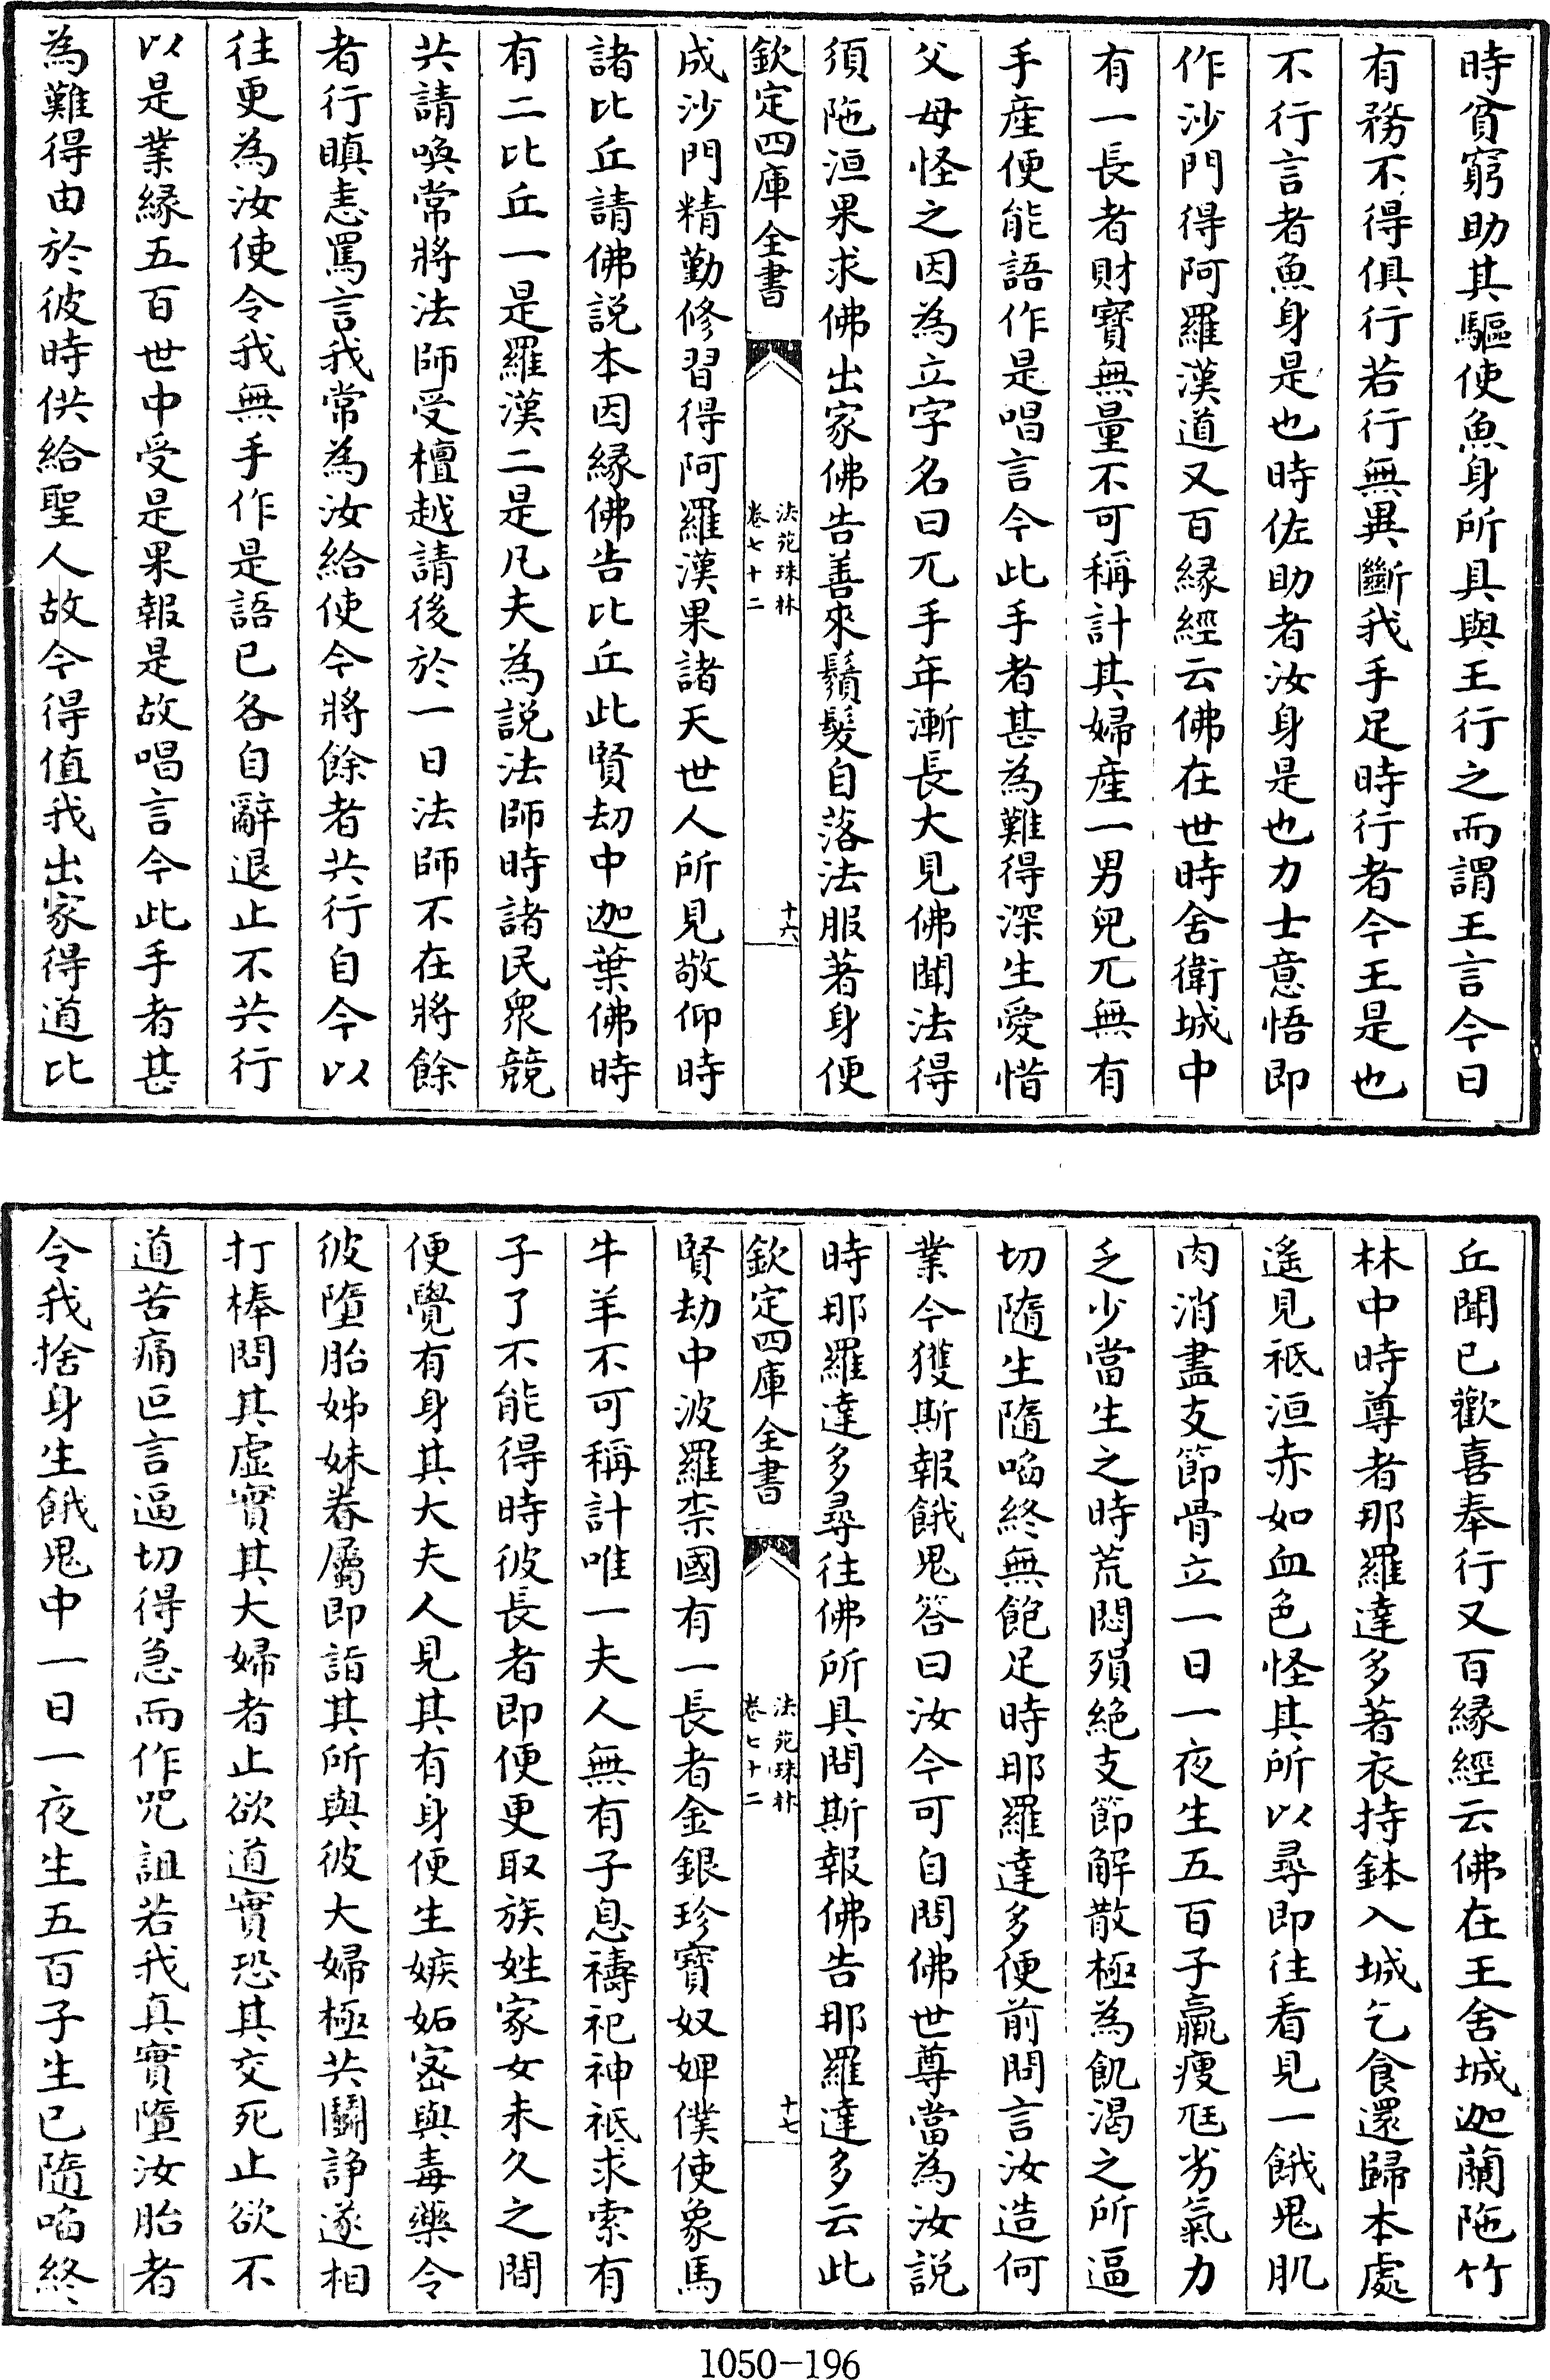 時貧窮助其驅使魚身所具與王行之而謂王言今日
有務不得俱行若行無異斷我手足時行者今王是也
不行言者魚身是也時佐助者汝身是也力士意悟即
作沙門得阿羅漢道又百縁經云佛在世時舍衛城中
有一長者財寶無量不可稱計其婦産一男兒兀無有
手産便能語作是唱言今此手者甚為難得深生愛惜
父母怪之因為立字名曰兀手年漸長大見佛聞法得
須陁洹果求佛出家佛告善來鬚髮自落法服著身便
欽定四庫全書
法苑珠林
卷七十二
十六
成沙門精勤修習得阿羅漢果諸天世人所見敬仰時
諸比丘請佛説本因縁佛告比丘此賢刼中迦葉佛時
有二比丘一是羅漢二是凡夫為説法師時諸民衆競
共請喚常將法師受檀越請後於一日法師不在將餘
者行瞋恚罵言我常為汝給使今將餘者共行自今以
往更為汝使令我無手作是語已各自辭退止不共行
以是業縁五百世中受是果報是故唱言今此手者甚
為難得由於彼時供給聖人故今得值我出家得道比
丘聞已歡喜奉行又百縁經云佛在王舍城迦蘭陁竹
林中時尊者那羅達多著衣持鉢入城乞食還歸本處
遙見祇洹赤如血色怪其所以尋即往看見一餓鬼肌
肉消盡支節骨立一日一夜生五百子羸瘦尫劣氣力
乏少當生之時荒悶殞絶支節解散極為飢渴之所逼
切隨生隨㗖終無飽足時那羅達多便前問言汝造何
業今獲斯報餓鬼答曰汝今可自問佛世尊當為汝説
時那羅達多尋往佛所具問斯報佛告那羅達多云此
欽定四庫全書
法苑珠林
卷七十二
十七
賢劫中波羅柰國有一長者金銀珍寶奴婢僕使象馬
牛羊不可稱計唯一夫人無有子息禱祀神祇求索有
子了不能得時彼長者即便更取族姓家女未久之間
便覺有身其大夫人見其有身便生嫉妬宻與毒藥令
彼墮胎姊妹眷屬即詣其所與彼大婦極共鬭諍遂相
打棒問其虚實其大婦者止欲道實恐其交死止欲不
道苦痛叵言逼切得急而作咒詛若我真實墮汝胎者
令我捨身生餓鬼中一日一夜生五百子生已隨㗖終
1050-196